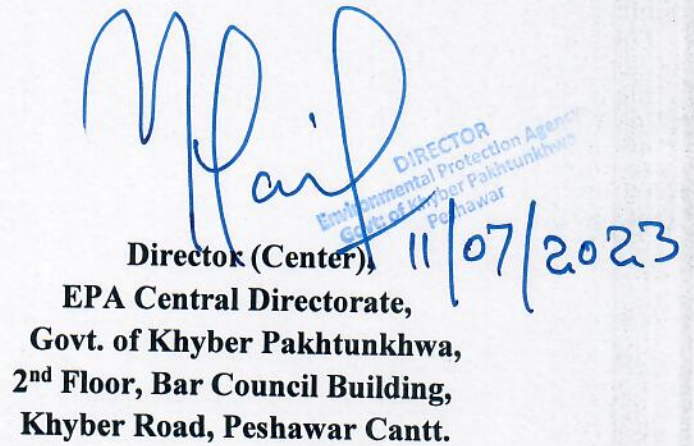 DIRECTOR
Environmental Protection Agency
Govt: of Khyber Pakhtunkhwa
Peshawar
Director (Center),
11/07/2023
EPA Central Directorate,
Govt. of Khyber Pakhtunkhwa,
2nd Floor, Bar Council Building,
Khyber Road, Peshawar Cantt.